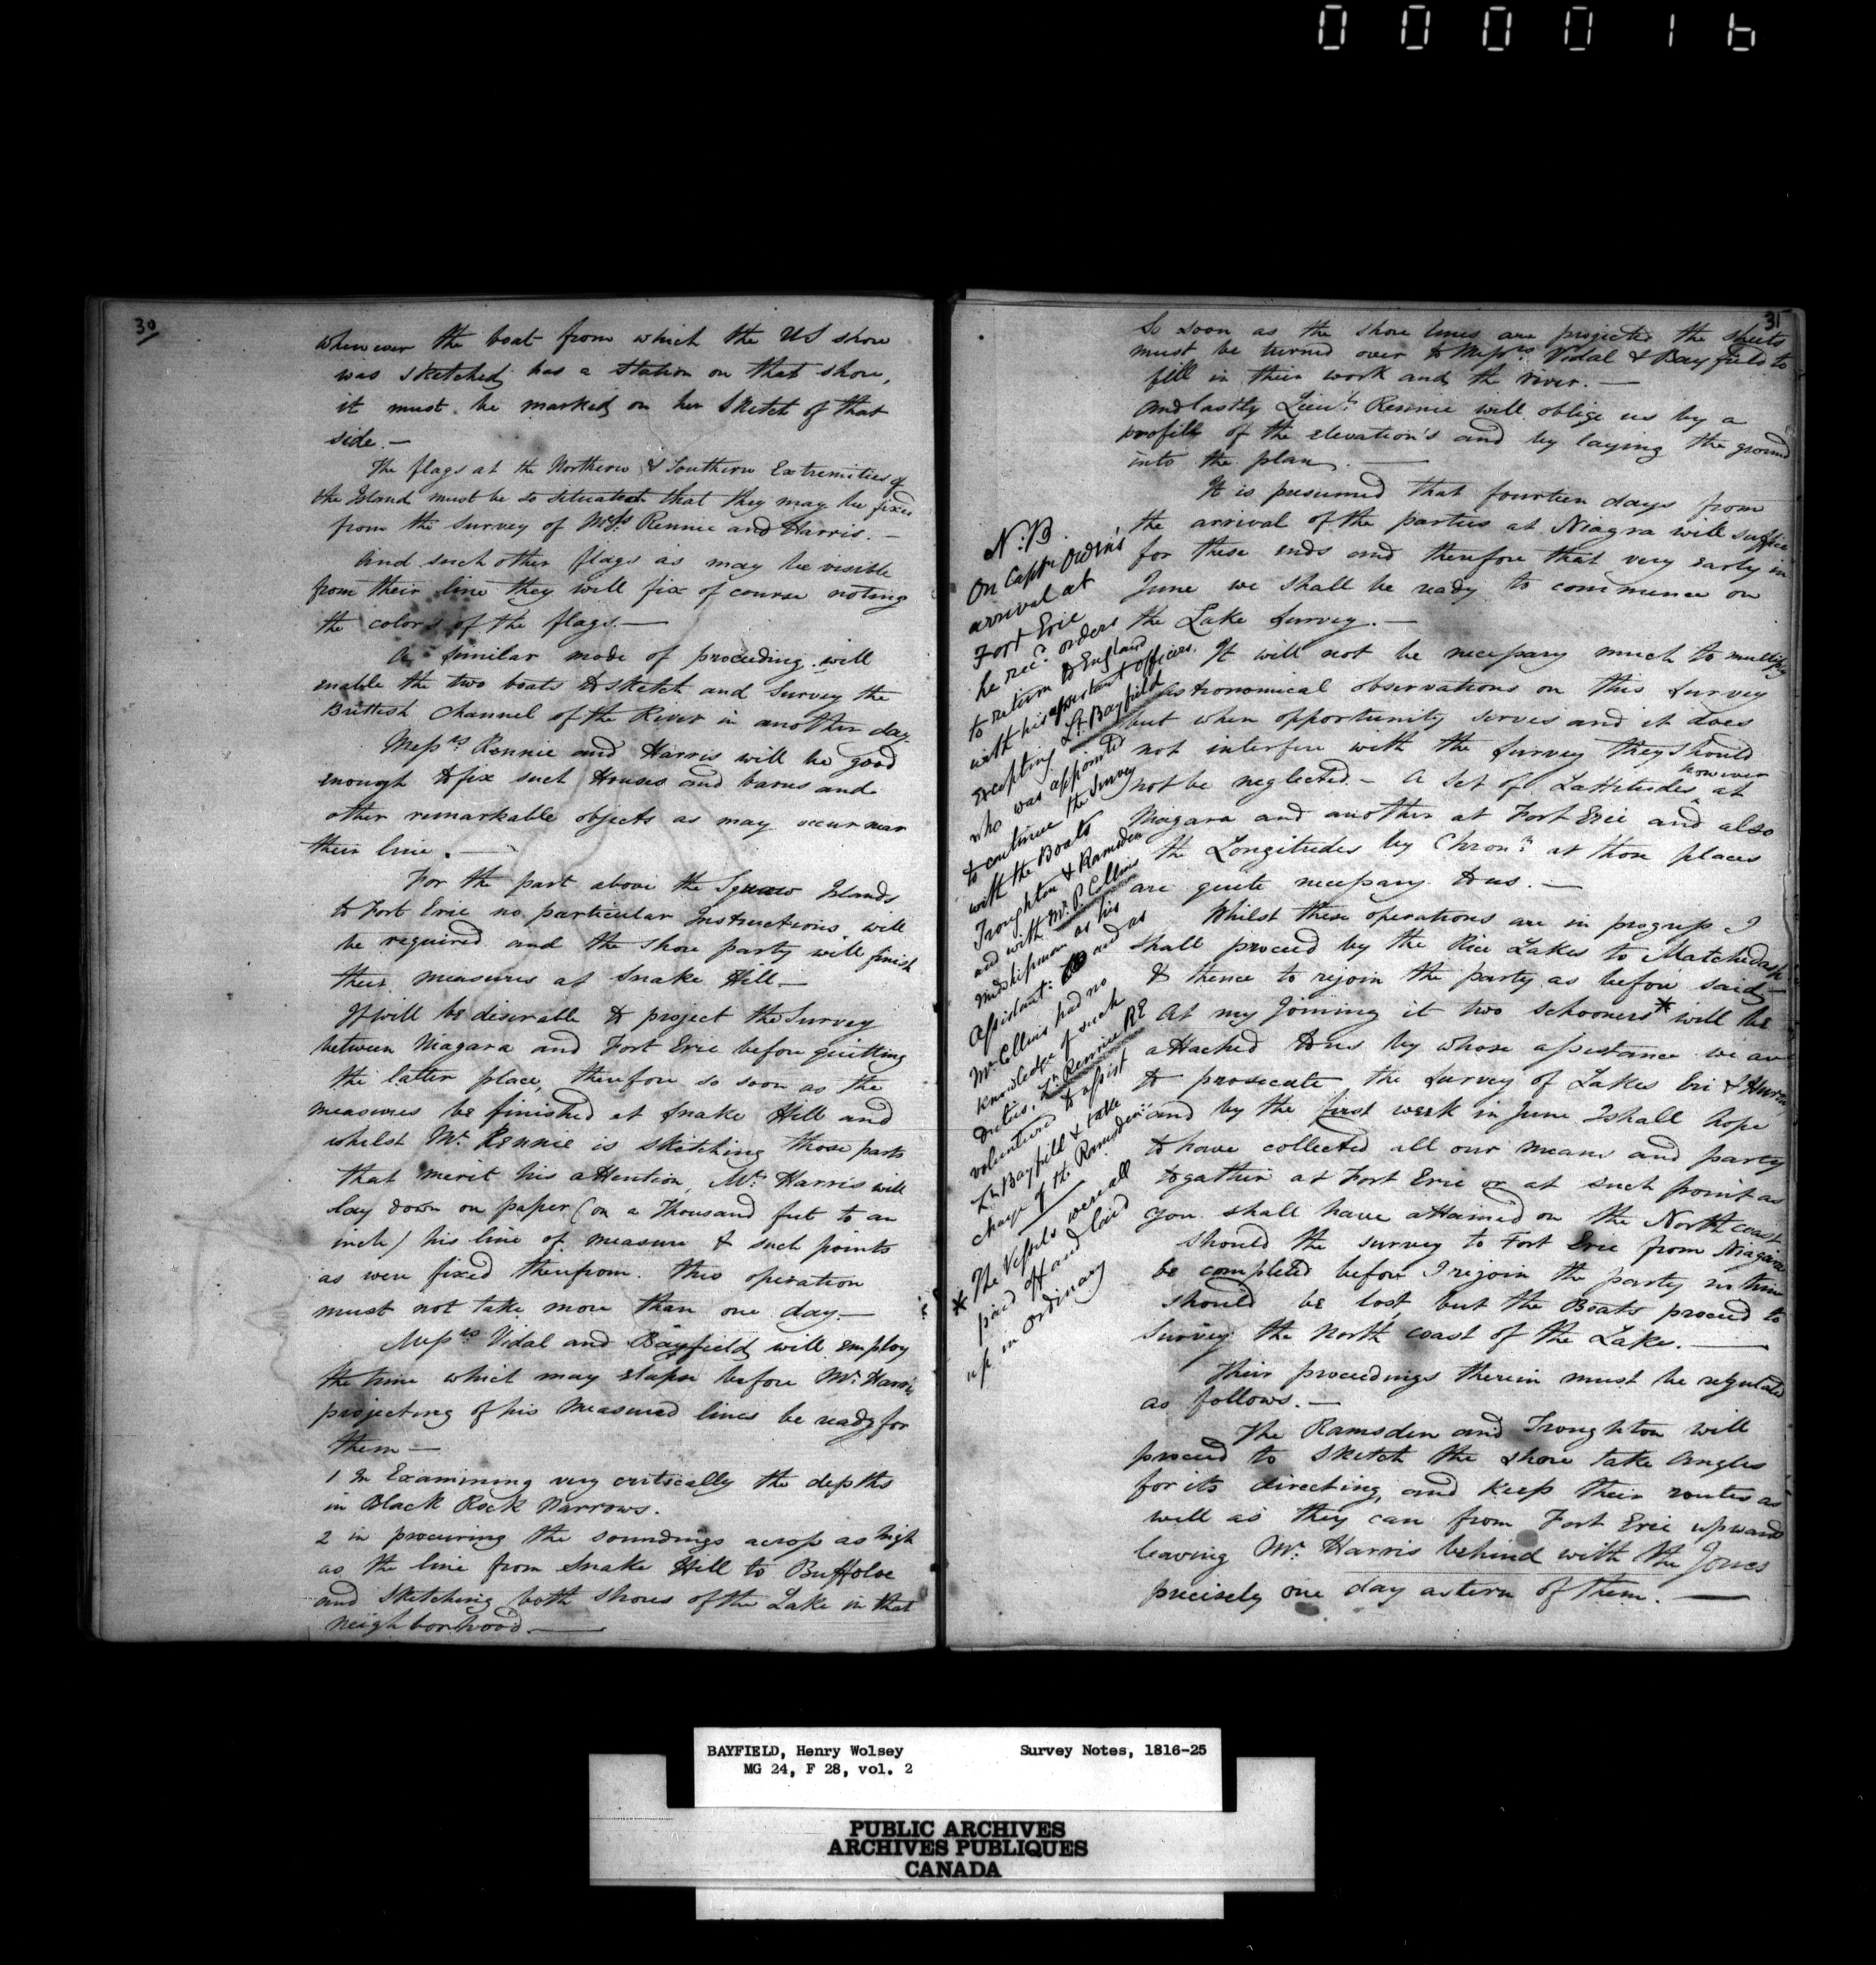 000016
30
whenever the boat from which the US shore
was sketched has a station on that shore,
it must be marked on her sketch of that
side.—
The flags at the Northern & Southern Extremities of
the Island must be so situated that they may be fixed
from the survey of Messrs Rennie and Harris.—
And such other flags as may be visible
from their line they will fix of course noting
the colors of the flags.—
A similar mode of proceeding will
enable the two boats to sketch and survey the
British Channel of the River in another day.
Messrs Rennie and Harris will be good
enough to fix such Houses and barns and
other remarkable objects as may occur near
their line.—
For the part above the Squaw Islands
to Fort Erie no particular Instructions will
be required and the shore party will finish
their measures at Snake Hill—
It will be desirable to project the Survey
between Niagara and Fort Erie before quitting
the latter place, therefore so soon as the
measures be finished at Snake Hill and
whilst Mr. Rennie is sketching those parts
that merit his attention, Mr. Harris will
lay down on paper (on a Thousand feet to an
inch) his line of measure & such points
as were fixed therefrom. This operation
must not take more than one day—
Messrs Vidal and Bayfield will employ
the time which may elapse before Mr. Harris
projecting of his Measured lines be ready for
them—
1 In Examining very critically the depths
in Black Rock Narrows.
2 in procuring the soundings across as high
as the line from Snake Hill to Buffoloe
and sketching both shores of the Lake in that
neighborhood.—
31
So soon as the shore lines are projected the sheets
must be turned over to Messrs Vidal & Bayfield to
fill in their work and the river.—
And lastly Lieut. Rennie will oblige us by a
profile of the elevation's and by laying the ground
into the plan.—
It is presumed that fourteen days from
the arrival of the parties at Niagra will suffice
for these ends and therefore that very early in
June we shall be ready to commence on
the Lake Survey.—
It will not be necessary much to multiply
astronomical observations on this survey
but when opportunity serves and it does
not interfere with the survey they should
not be neglected.— A set of Lattitudes however at
Niagara and another at Fort Erie and also
the Longitudes by Chronr. at those places
are quite necessary to us.—
Whilst these operations are in progress I
shall proceed by the Rice Lakes to Matchedash
& thence to rejoin the party as before said—
At my joining it two schooners* will be
attached to us by whose assistance we are
to prosecute the survey of Lakes Eri & Huron
and by the first week in June I shall hope
to have collected all our means and party
togather at Fort Erie or at such point as
you shall have attained on the North coast
should the survey to Fort Erie from Niagara
be completed before I rejoin the party no time
should be lost, but the Boats proceed to
Survey the North coast of the Lake.—
Their proceedings therein must be regulated
as follows.—
The Ramsden and Troughton will
proceed to sketch the shore take angles
for its directing, and keep their routes as
well as they can from Fort Erie upwards
leaving Mr. Harris behind with the Jones
precisely one day astern of them.—
N:B.
On Captn Owen's
arrival at
Fort Erie
he recd. orders
to return to England
with his assistant officers,
excepting Lt. Bayfield
who was appointed
to continue the survey
with the Boats
Troughton & Ramsden
and with Mr. P. Collins
Midshipman as his
Assistant: and as
Mr Collins had no
knowledge of such
Duties, Lt. Rennie RE
volunteered to assist
Lt Bayfield & take
charge of the Ramsden
* The Vessels were all
paid off and laid
up in Ordinary
BAYFIELD, Henry Wolsey Survey Notes, 1816-25
MG 24, F 28, vol. 2
PUBLIC ARCHIVES
ARCHIVES PUBLIQUES
CANADA